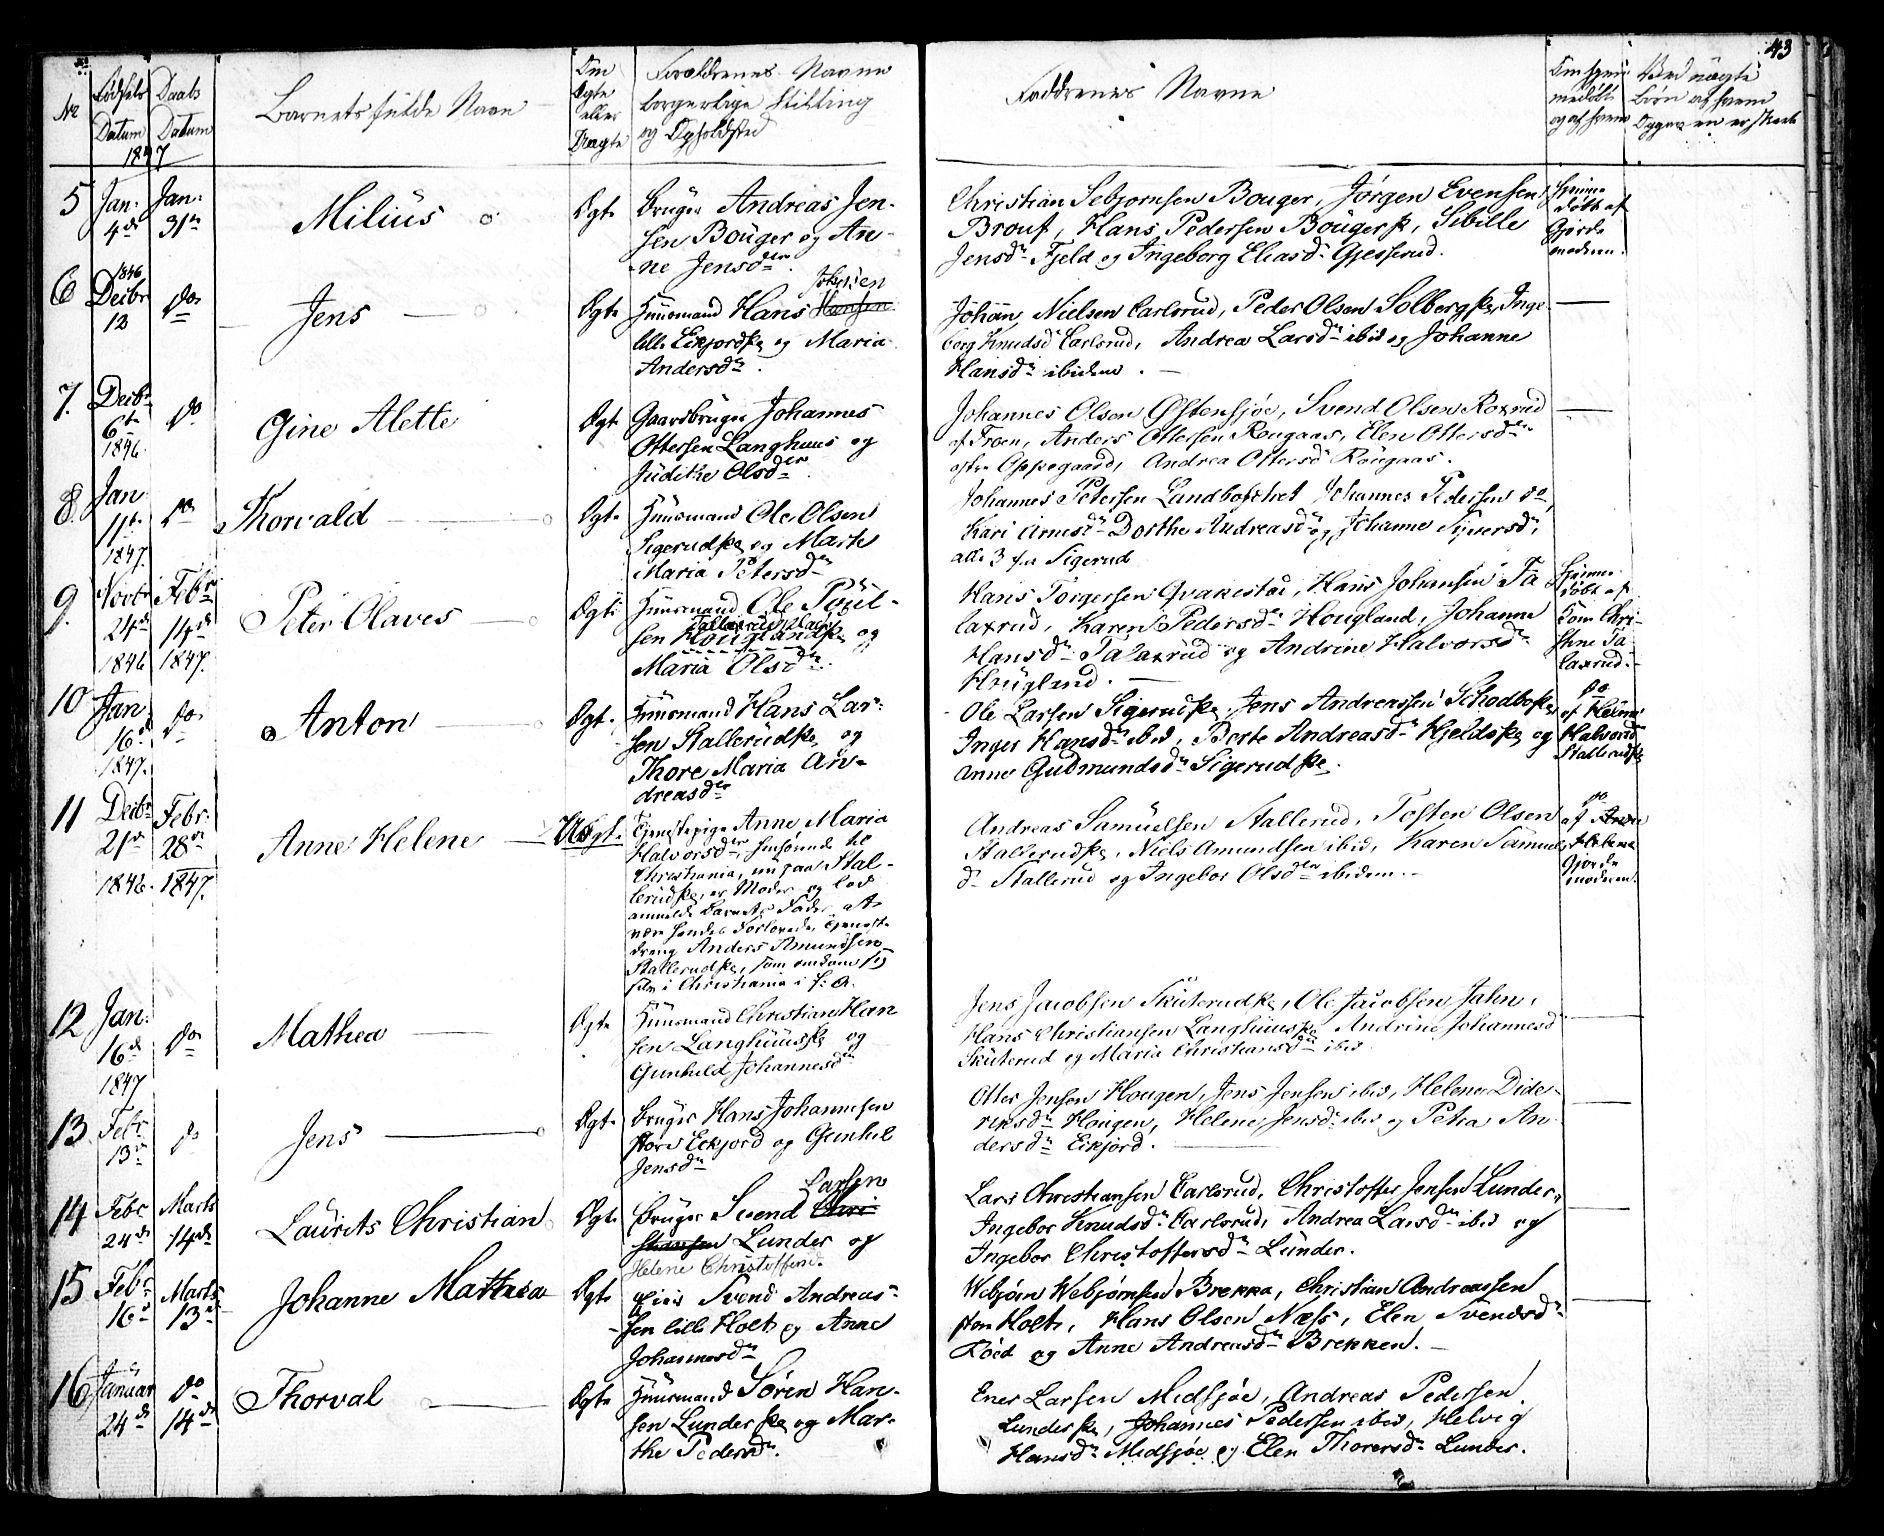 43
Nr
Fødsels Datum
Daabs Datum
1847
Barnets fulde Navn
Om Ægte eller Uægte
Forældrenes Navne
borgerlige Stilling
og Opholdsted
Faddrenes Navne
Om hjemmedøbt
og af hvem
Ved uægte
Børn af hvem
5 Jan. 4de Jan. 31te
Milius
Ægte
Bruger Andreas Jen-
sen Bouger og An-
ne Jensdter.
Christian Sebjørnsen Bouger, Jørgen Evensen
Hans Pedersen Bougersk, Sibille
Jensdr Fjeld og Ingeborg Eliasdr Gjesserud.
hjemme
døbt af
Gjorde
moderen.
6 1846 Decbr 12 do
Jens
Ægte
Huusmand Hans Hansen Johnsen
lille Eikjordsk og Maria
Andersdr.
Johan Nielsen Carlsrud, Peder Olsen Solbergsk, Inge-
borg Knudsd Carlsrud, Andrea Larsdr ibid og Johanne
Hansdr ibidem.
7. Decbr 6te 1846. do
Gine Alette
Ægte
Gaardbruger Johannes
Ottersen Langhuus og
Judithe Olsdter.
Johannes Olsen Østensjøe, Svend Olsen Roxrud
af Froen, Anders Ottersen Rougaas, Elen Ottersdr
østre Oppegaard, Andrea Ottersd Rougaas.
8. Jan. 11te 1847. do
Thorvald
Ægte
Huusmand Ole Olsen
Sigerudsk og Marte
Maria Petersdr
Johannes Petersen Johannes Pedersen do,
Kari Arnesdr Dorthe Andreasdr og Johanne Siversdr
alle 3 fra Sigerud
9. Novbr 24de 1846 Febr. 14de 1847.
Peter Olaves
Ægte
Huusmand Ole Poül-
sen Houglandsk og
Maria Olsdr.
Hans Torgersen Hans Johansen Ta
laxrud, Karen Pedersdr Hougland, Johanne
Hansdr Talaxrud og Andrine Halvorsdr
Hougland.
hjemme
døbt af
Chri-
stine Ta-
laxrud.
10 Jan. 16de 1847. do
Anton
Ægte.
Huusmand Hans Lar-
sen Stallerudsk og
Thore Maria An-
dreasdr
Ole Larsen Sigerudsk, Jens Andreassen
Inger Hansdr ibid, Berte Andreasdr og
Anne Gudmundsdr Sigerudsk.
do
af
Halvorsd
Stallerudsk
11 Decbr 21de 1846. Febr: 28de 1847.
Anne Helene
Uægt.
Tjenestepige Anne Maria
Halvorsdr, henhørende til
Christiania, nu paa Stal-
lerudsk, er Moder og lod
anmelde Barnets Fader at
være hendes Forlovede, Tjeneste-
dreng Anders Amundsen
Stallerudsk, som
i Christiania i f: A.
Andreas Samuelsen Stallerud, Tosten Olsen
Stallerudsk, Niels Amundsen ibid, Karen Samuels
dr Stallerud og Ingebor Olsdter ibidem.
do
af Anne
Helene
Gjorde
moderen.
12 Jan. 16de 1847 do
Mathea
Ægte
Huusmand Christian Han
sen Langhuussk og
Gunhild Johannesdr
Jens Jacobsen Skuterudsk, Ole Jacobsen
Hans Christiansen Langhuussk Andrine Johannesd
Skuterud og Maria Christiansdr ibid
13. Febr 13de do
Jens
Ægte
Bruger Hans Johannesen
store Eikjord og Gunhil
Jensdr
Otter Jensen Hougen, Jens Jensen ibid, Helene Dide-
riksdr Hougen, Helene Jensdr ibid og Petra An-
dersdr Eikjord.
14 Febr 24de Marts 14de
Laurits Christian
Ægte
Bruger Svend Chri- Larsen
stiansen Lunder og
Helene Christoffersd.
Lars Christiansen Carlsrud, Christoffer Jensen Lunder,
Ingebor Knudsdr Carlsrud, Andrea Larsdr ibid og
Ingebor Christoffersdr Lunder.
15 Febr 16de Marts 13de
Johanne Mathea
Ægte
Eier Svend Andreas-
sen lille Holt og Anne
Johannesdr
Webjørn Webjørnsen Brekka, Christian Andreassen
store Holt, Hans Olsen Næss, Elen Svendsdr
og Anne Andreasdr Brekken.
16 Januar 24de do 14de
Thorval
Ægte
Huusmand Søren Han-
sen Lundersk og Mar-
the Pedersdr.
Ener Larsen Midsjøe, Andreas Pedersen
Lundersk, Johannes Pedersen ibid, Helvig
Hansdr Midsjøe og Elen Thorersdr Lunder.